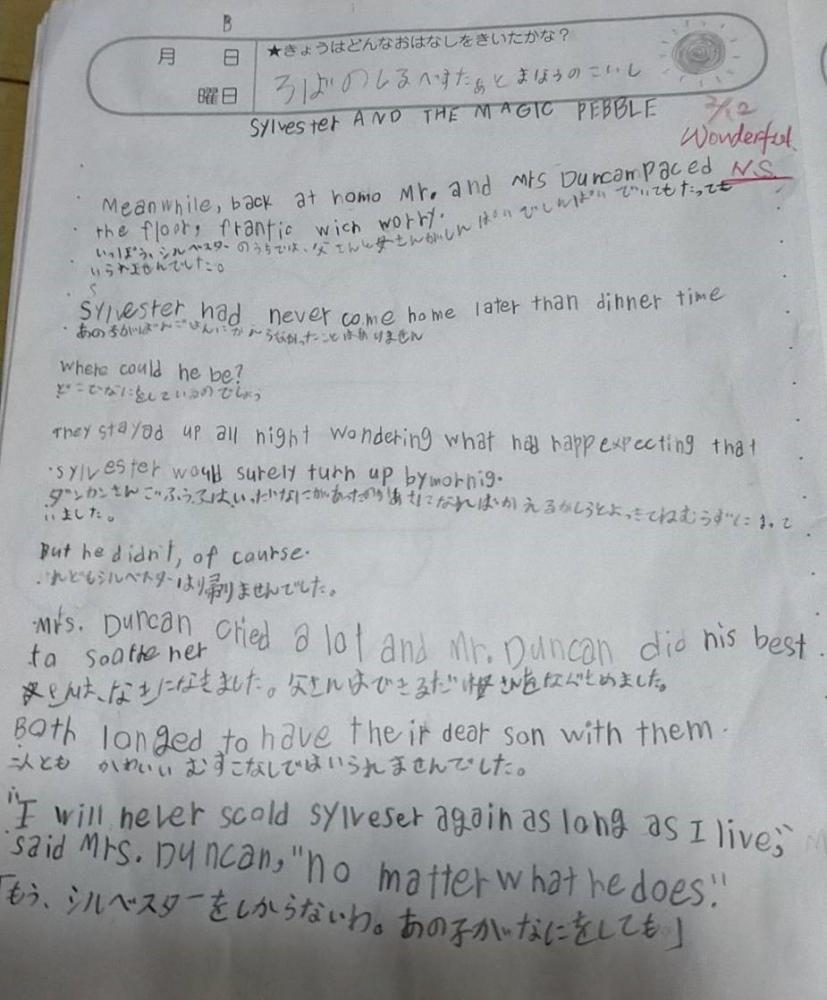 B
月 日
曜日
★きょうはどんなおはなしをきいたかな?
ろばのしるべすたぁとまほうのこいし
Sylvester AND THE MAGIC PEBBLE
2/12
Wonderful.
N.S.
Meanwhile, back at homo Mr. and Mrs Duncampaced
the floor, frantic wich worry.
いっぽう、シルベスターのうちでは、父さんと母さんがしんぱいでしんぱいでいてもたっても
いられませんでした。
Sylvester had never come home later than dinner time
あの子がばんごはんにかえらなかったことはありません
Where could he be?
どこでなにをしているのでしょう
They stayod up all night wondering what had happexpecting that
sylvester would surely turn up bymornig.
ダンカンさんごふうふは、いったいなにがあったのか あさになればかえるかしらと ねむらずに まって
いました。
But he didn't, of course.
けれどもシルベスターは 帰りませんでした。
Mrs. Duncan cried a lot and Mr. Duncan did his best
to soathe her
母さんは、なきになきました。父さんはできるだけ母さんをなぐさめました。
Both longed to have their dear son with them.
二人とも かわいい むすこなしではいられませんでした。
"I will never scold sylveser again as long as I live,"
said Mrs. Duncan, "no matter what he does."
「もう、シルベスターをしからないわ。あの子がなにをしても」